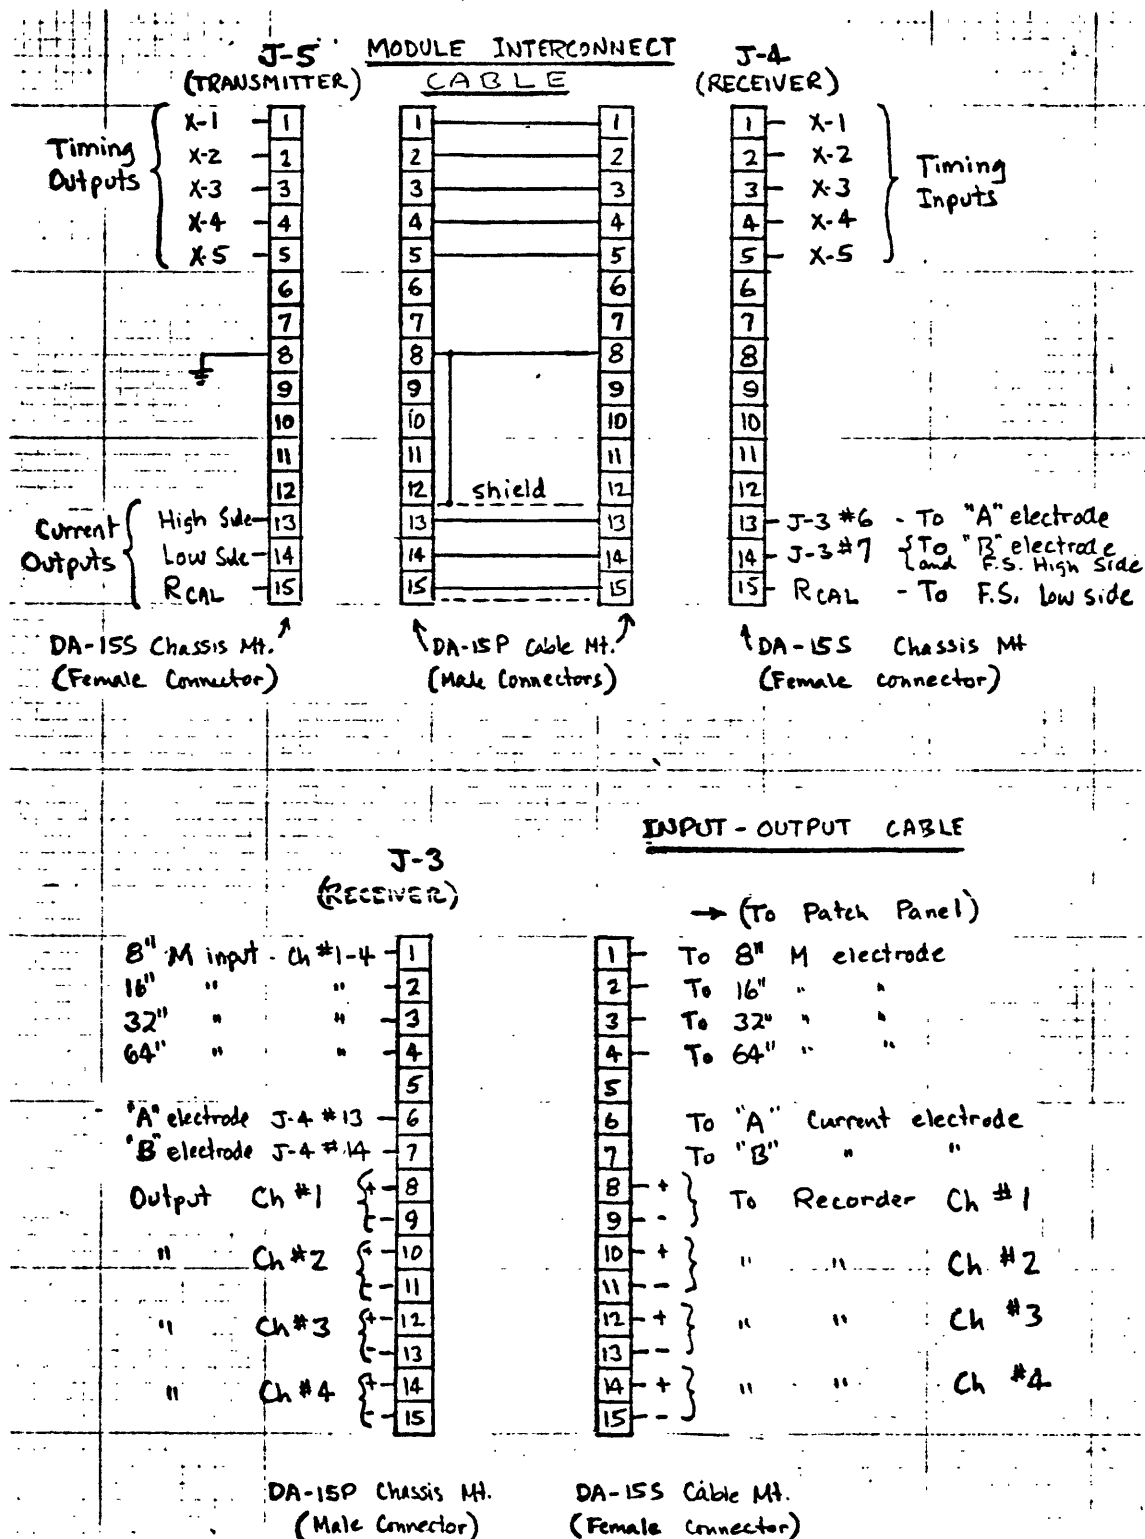 J-5 MODULE INTERCONNECT J-4
(TRANSMITTER) CABLE (RECEIVER)
Timing Outputs
X-1 1
X-2 2
X-3 3
X-4 4
X-5 5
6
7
8
9
10
11
12
Current Outputs
High Side 13
Low Side 14
RCAL 15
DA-15S Chassis Mt.
(Female Connector)
1 1
2 2
3 3
4 4
5 5
6 6
7 7
8 8
9 9
10 10
11 11
12 shield 12
13 13
14 14
15 15
DA-15P Cable Mt.
(Male Connectors)
1 X-1
2 X-2
3 X-3
4 X-4
5 X-5
Timing Inputs
6
7
8
9
10
11
12
13 J-3 #6 - To "A" electrode
14 J-3 #7 To "B" electrode
and F.S. High Side
15 RCAL - To F.S. Low side
DA-15S Chassis Mt
(Female connector)
INPUT-OUTPUT CABLE
J-3
(RECEIVER)
→ (To Patch Panel)
8" M input - Ch #1-4 1
16" " " 2
32" " " 3
64" " " 4
5
"A" electrode J-4 #13 6
"B" electrode J-4 #14 7
Output Ch #1 + 8
- 9
" Ch #2 + 10
- 11
" Ch #3 + 12
- 13
" Ch #4 + 14
- 15
DA-15P Chassis Mt.
(Male Connector)
1 To 8" M electrode
2 To 16" " "
3 To 32" " "
4 To 64" " "
5
6 To "A" Current electrode
7 To "B" " "
8 + To Recorder Ch #1
9 -
10 + " " Ch #2
11 -
12 + " " Ch #3
13 -
14 + " " Ch #4
15 -
DA-15S Cable Mt.
(Female Connector)